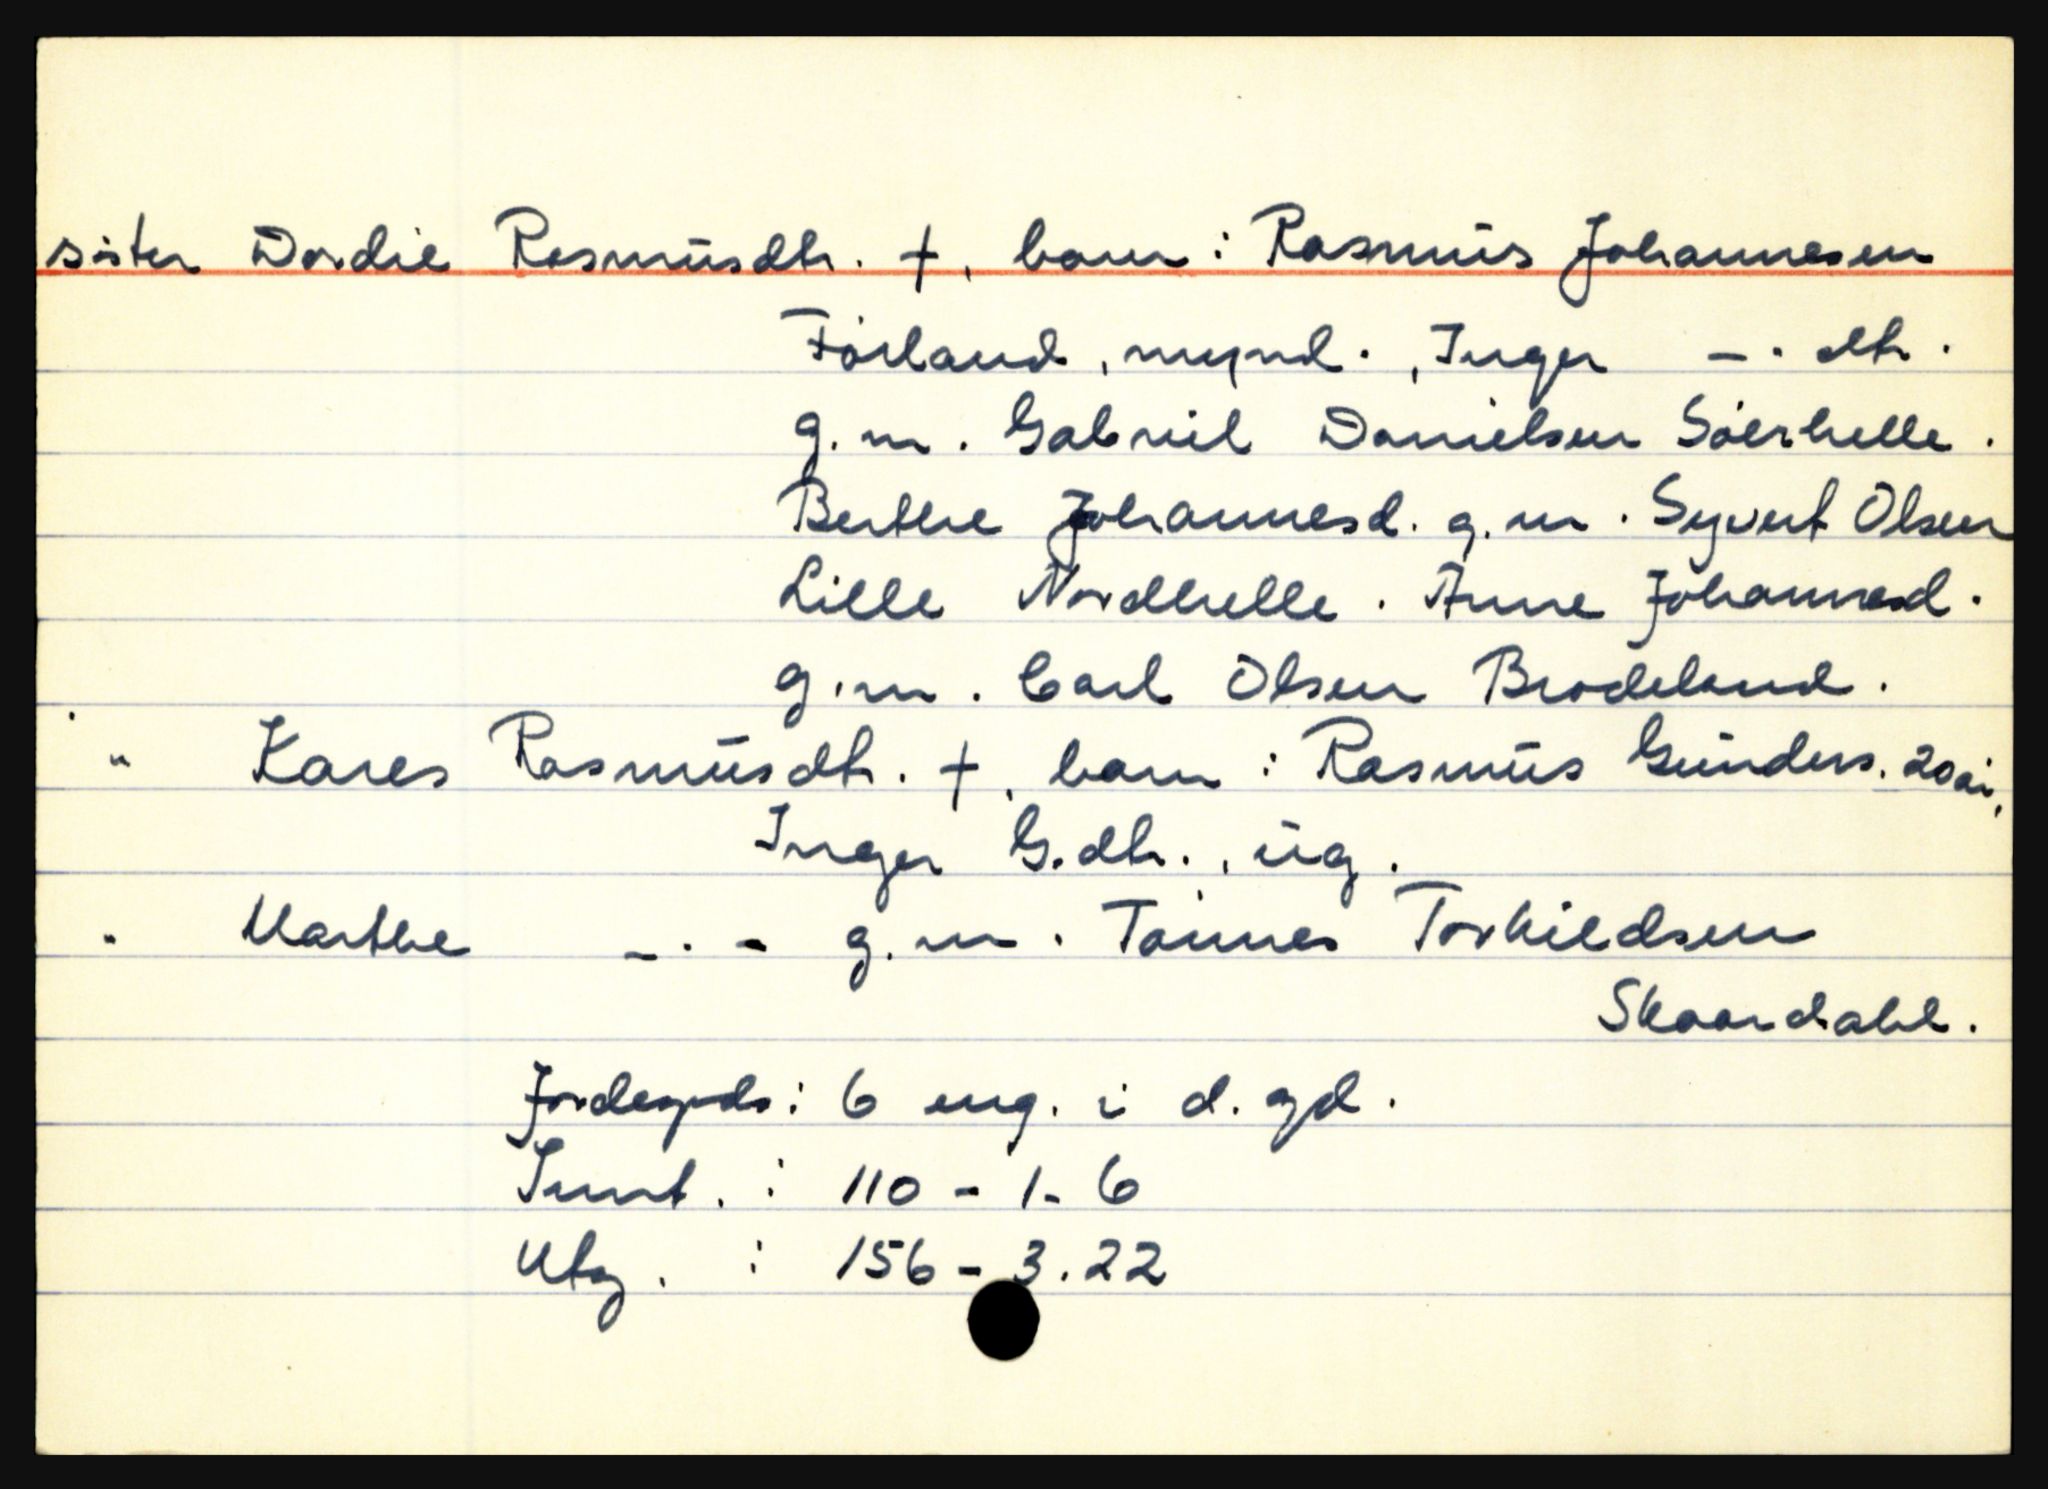 søster Dordie Rasmusdtr. †, barn: Rasmus Johannesen
Førland, mynd., Inger -.dtr.
g.m. Gabriel Danielsen Søerhelle.
Berthe Johannesd. g.m. Syvert Olsen
Lille Nordhelle. Anne Johannesd.
g.m. Carl Olsen Brodeland.
" Kares Rasmusdtr. †, barn: Rasmus Gunders. 20 år,
Inger G.dtr., ug.
" Marthe -.- g.m. Tønnes Torkildsen
Skaardahl.
Jordegods: 6 eng. i d. gd.
Innt.: 110 - 1 - 6
Utg.: 156 - 3.22